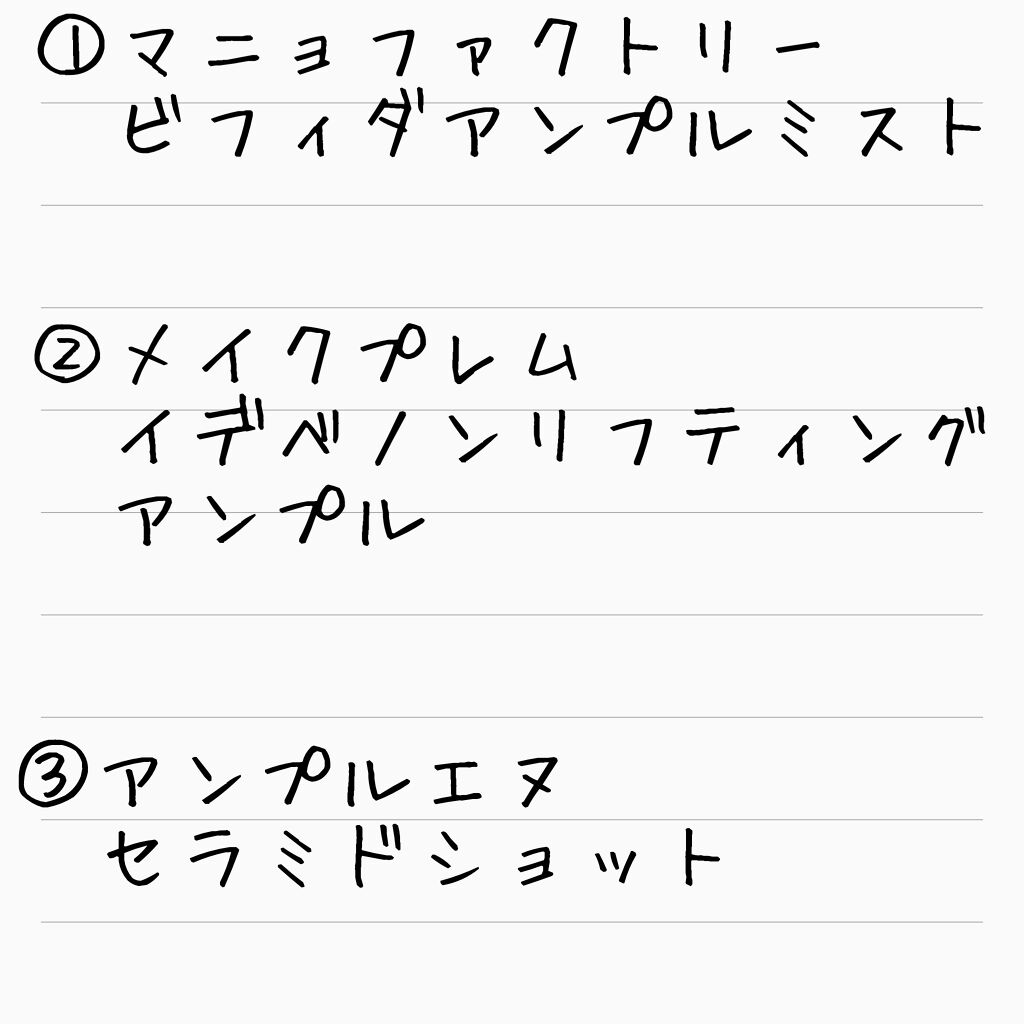 ①マニョファクトリー
ビフィダアンプルミスト
②メイクプレム
イデベノンリフティング
アンプル
③アンプルエヌ
セラミドショット